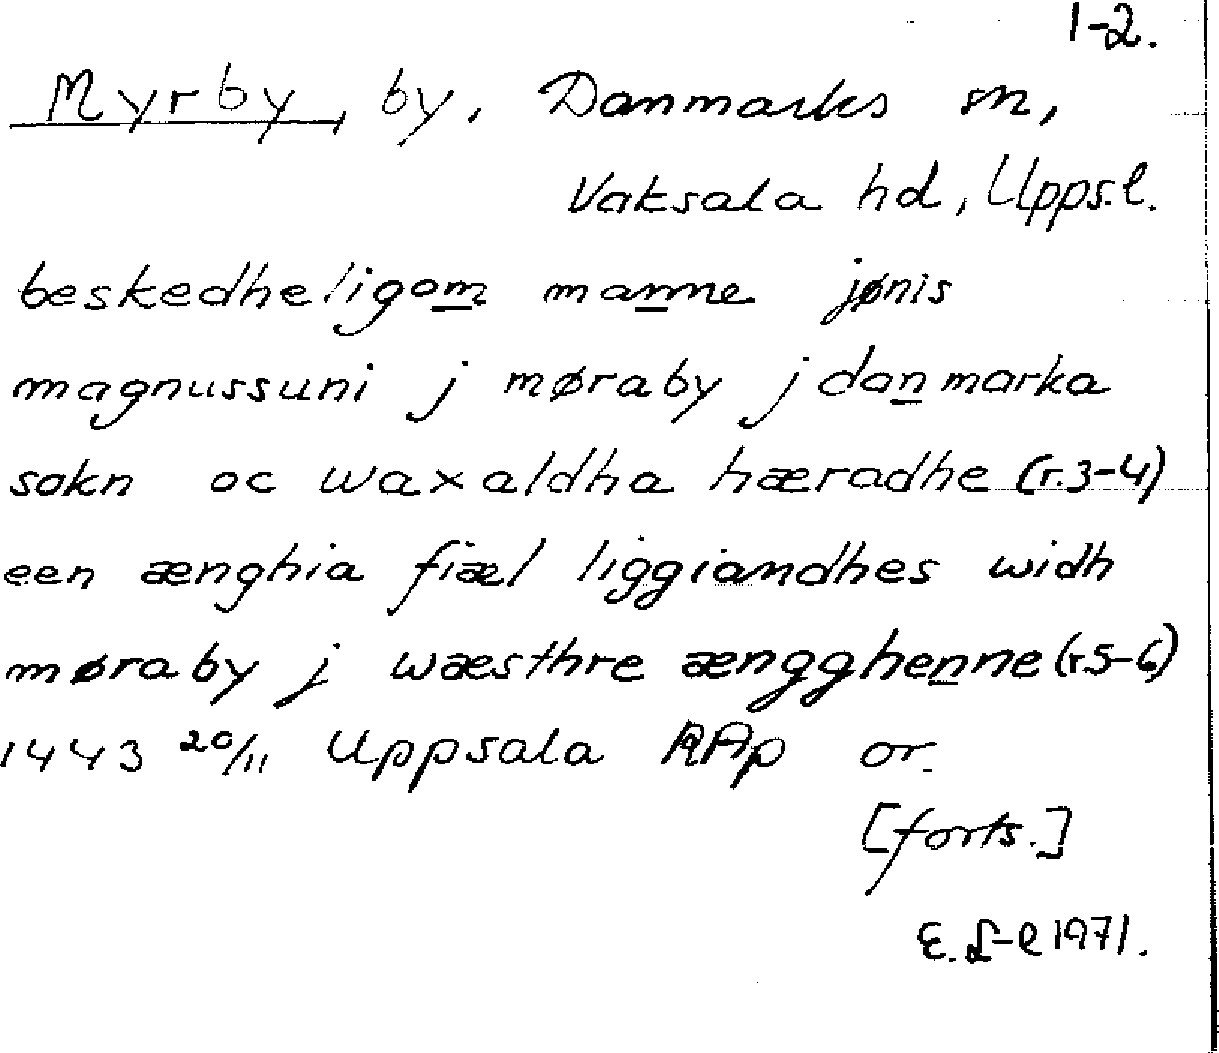 1-2.
Myrby, by, Danmarks sn,
Vaksala hd, Upps.l.
beskedheligom manne jønis
magnussuni j møraby j danmarka
sokn oc waxaldha hæradhe (r.3-4)
een ænghia fiæl liggiandhes widh
møraby j wæsthre ængghenne (r.5-6)
1443 20/11 Uppsala RAp or.
[forts.]
E. L-e 1971.